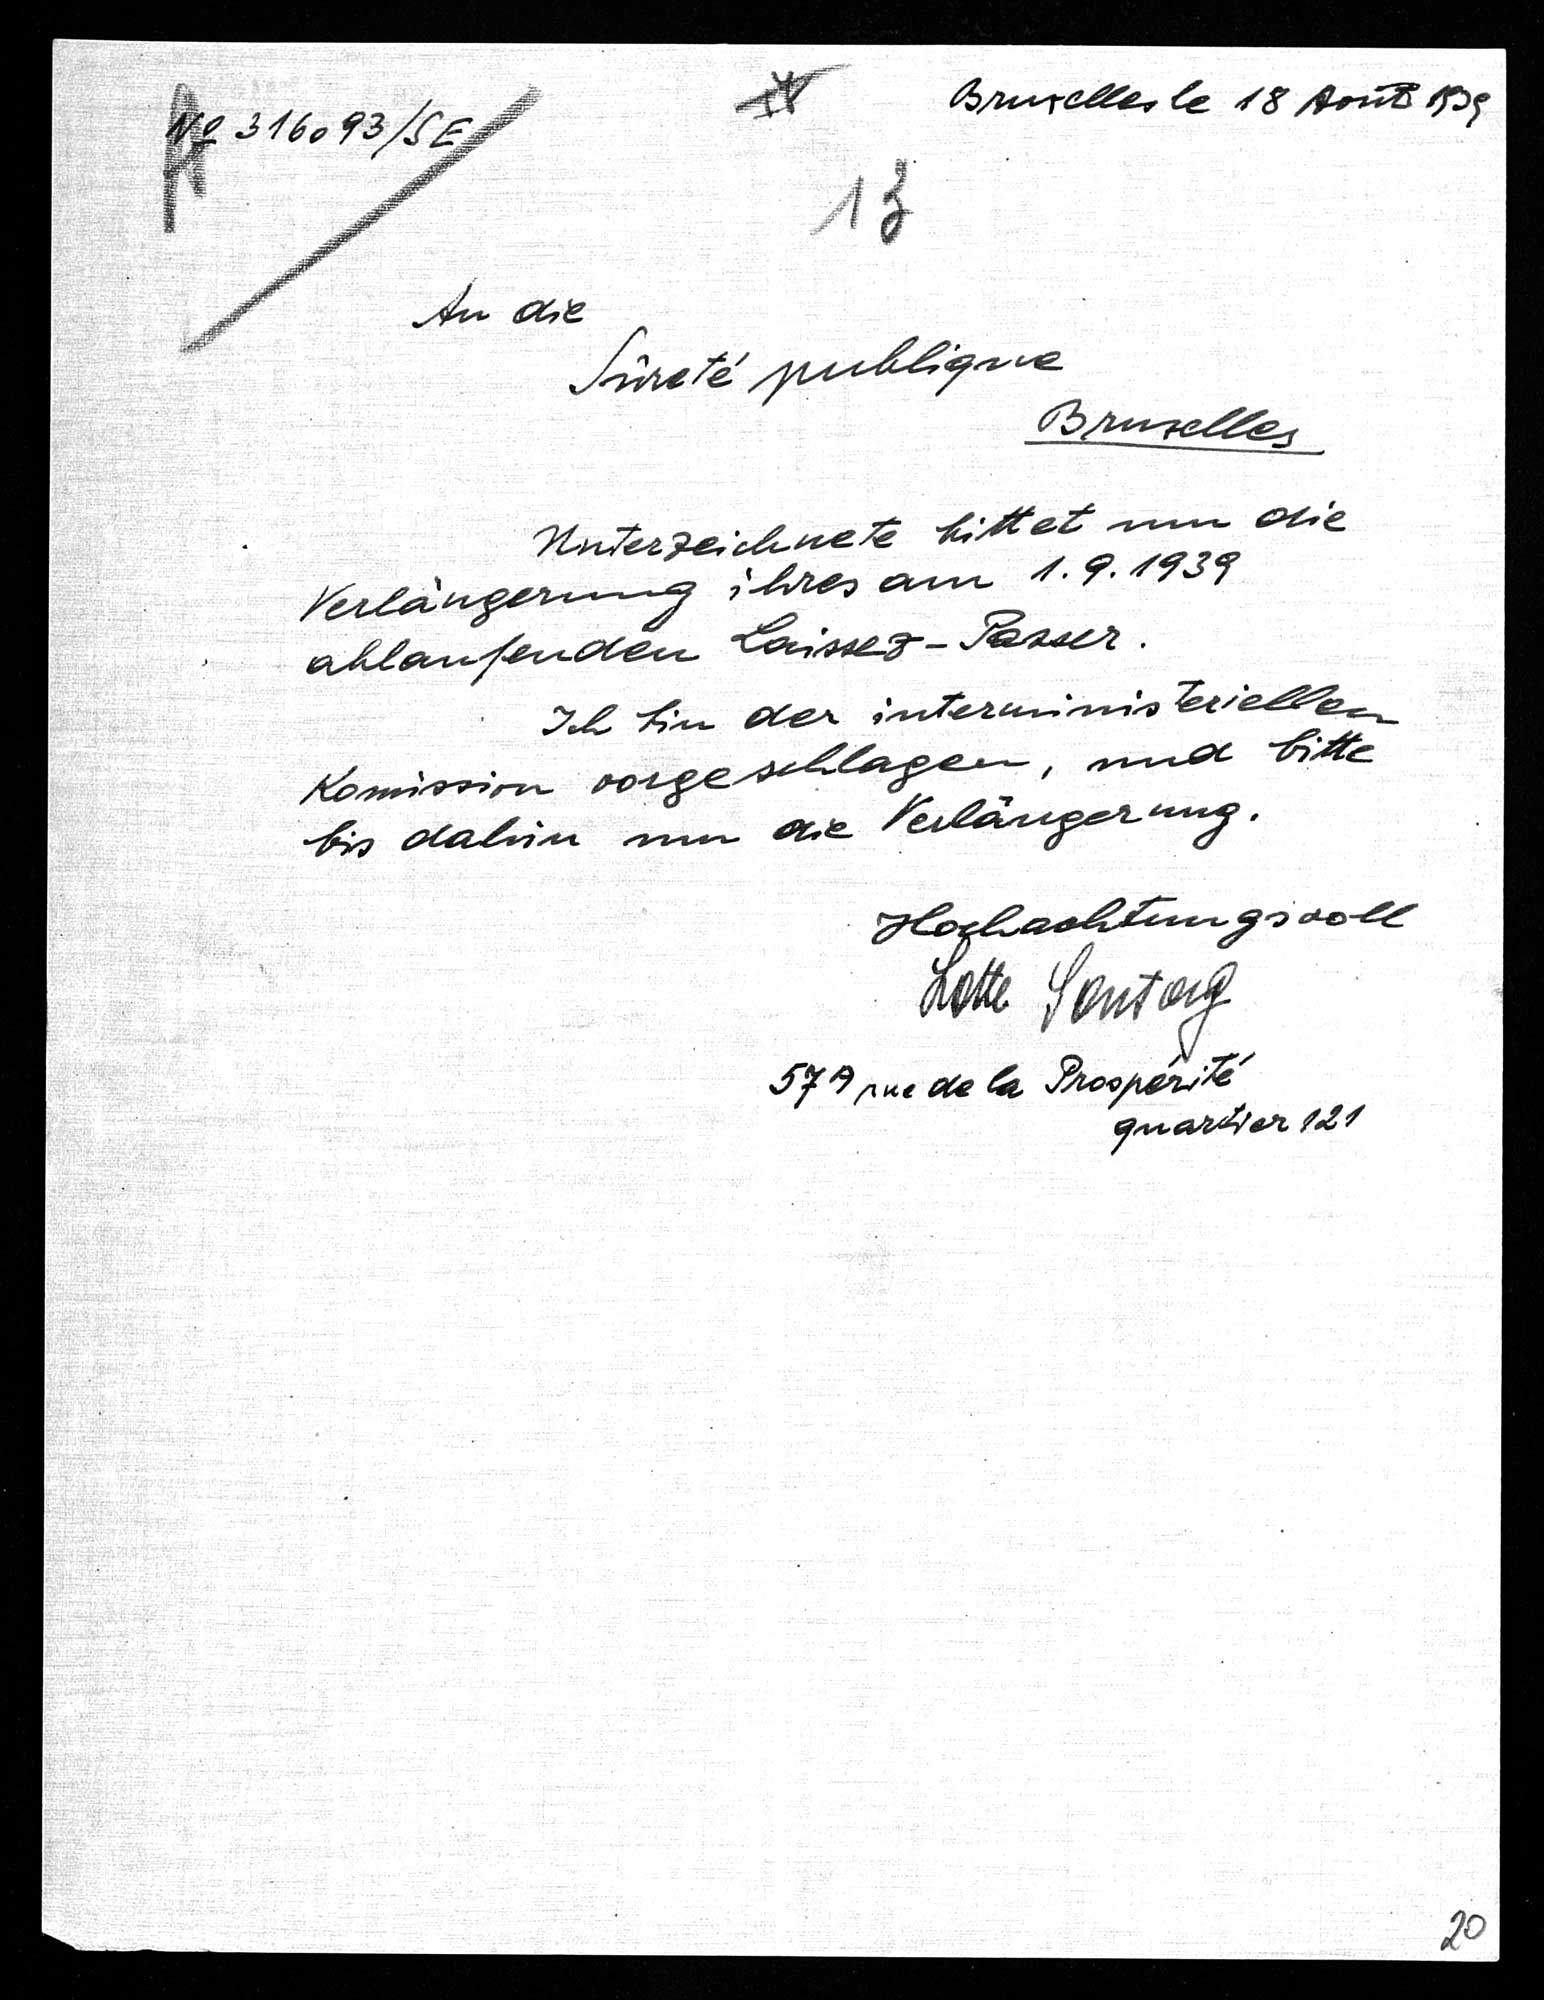 Bruxelles le 18 Août 1939
No 316093/SE
An die
Sûreté publique
Bruxelles
Unterzeichnete bittet um die
Verlängerung ihres am 1.9.1939
ablaufenden Laissez-Passer.
Ich bin der interministeriellen
Komission vorgeschlagen, und bitte
bis dahin um die Verlängerung.
Hochachtungsvoll
Lotte Sontag
57A rue de la Prospérité
quartier 121
20